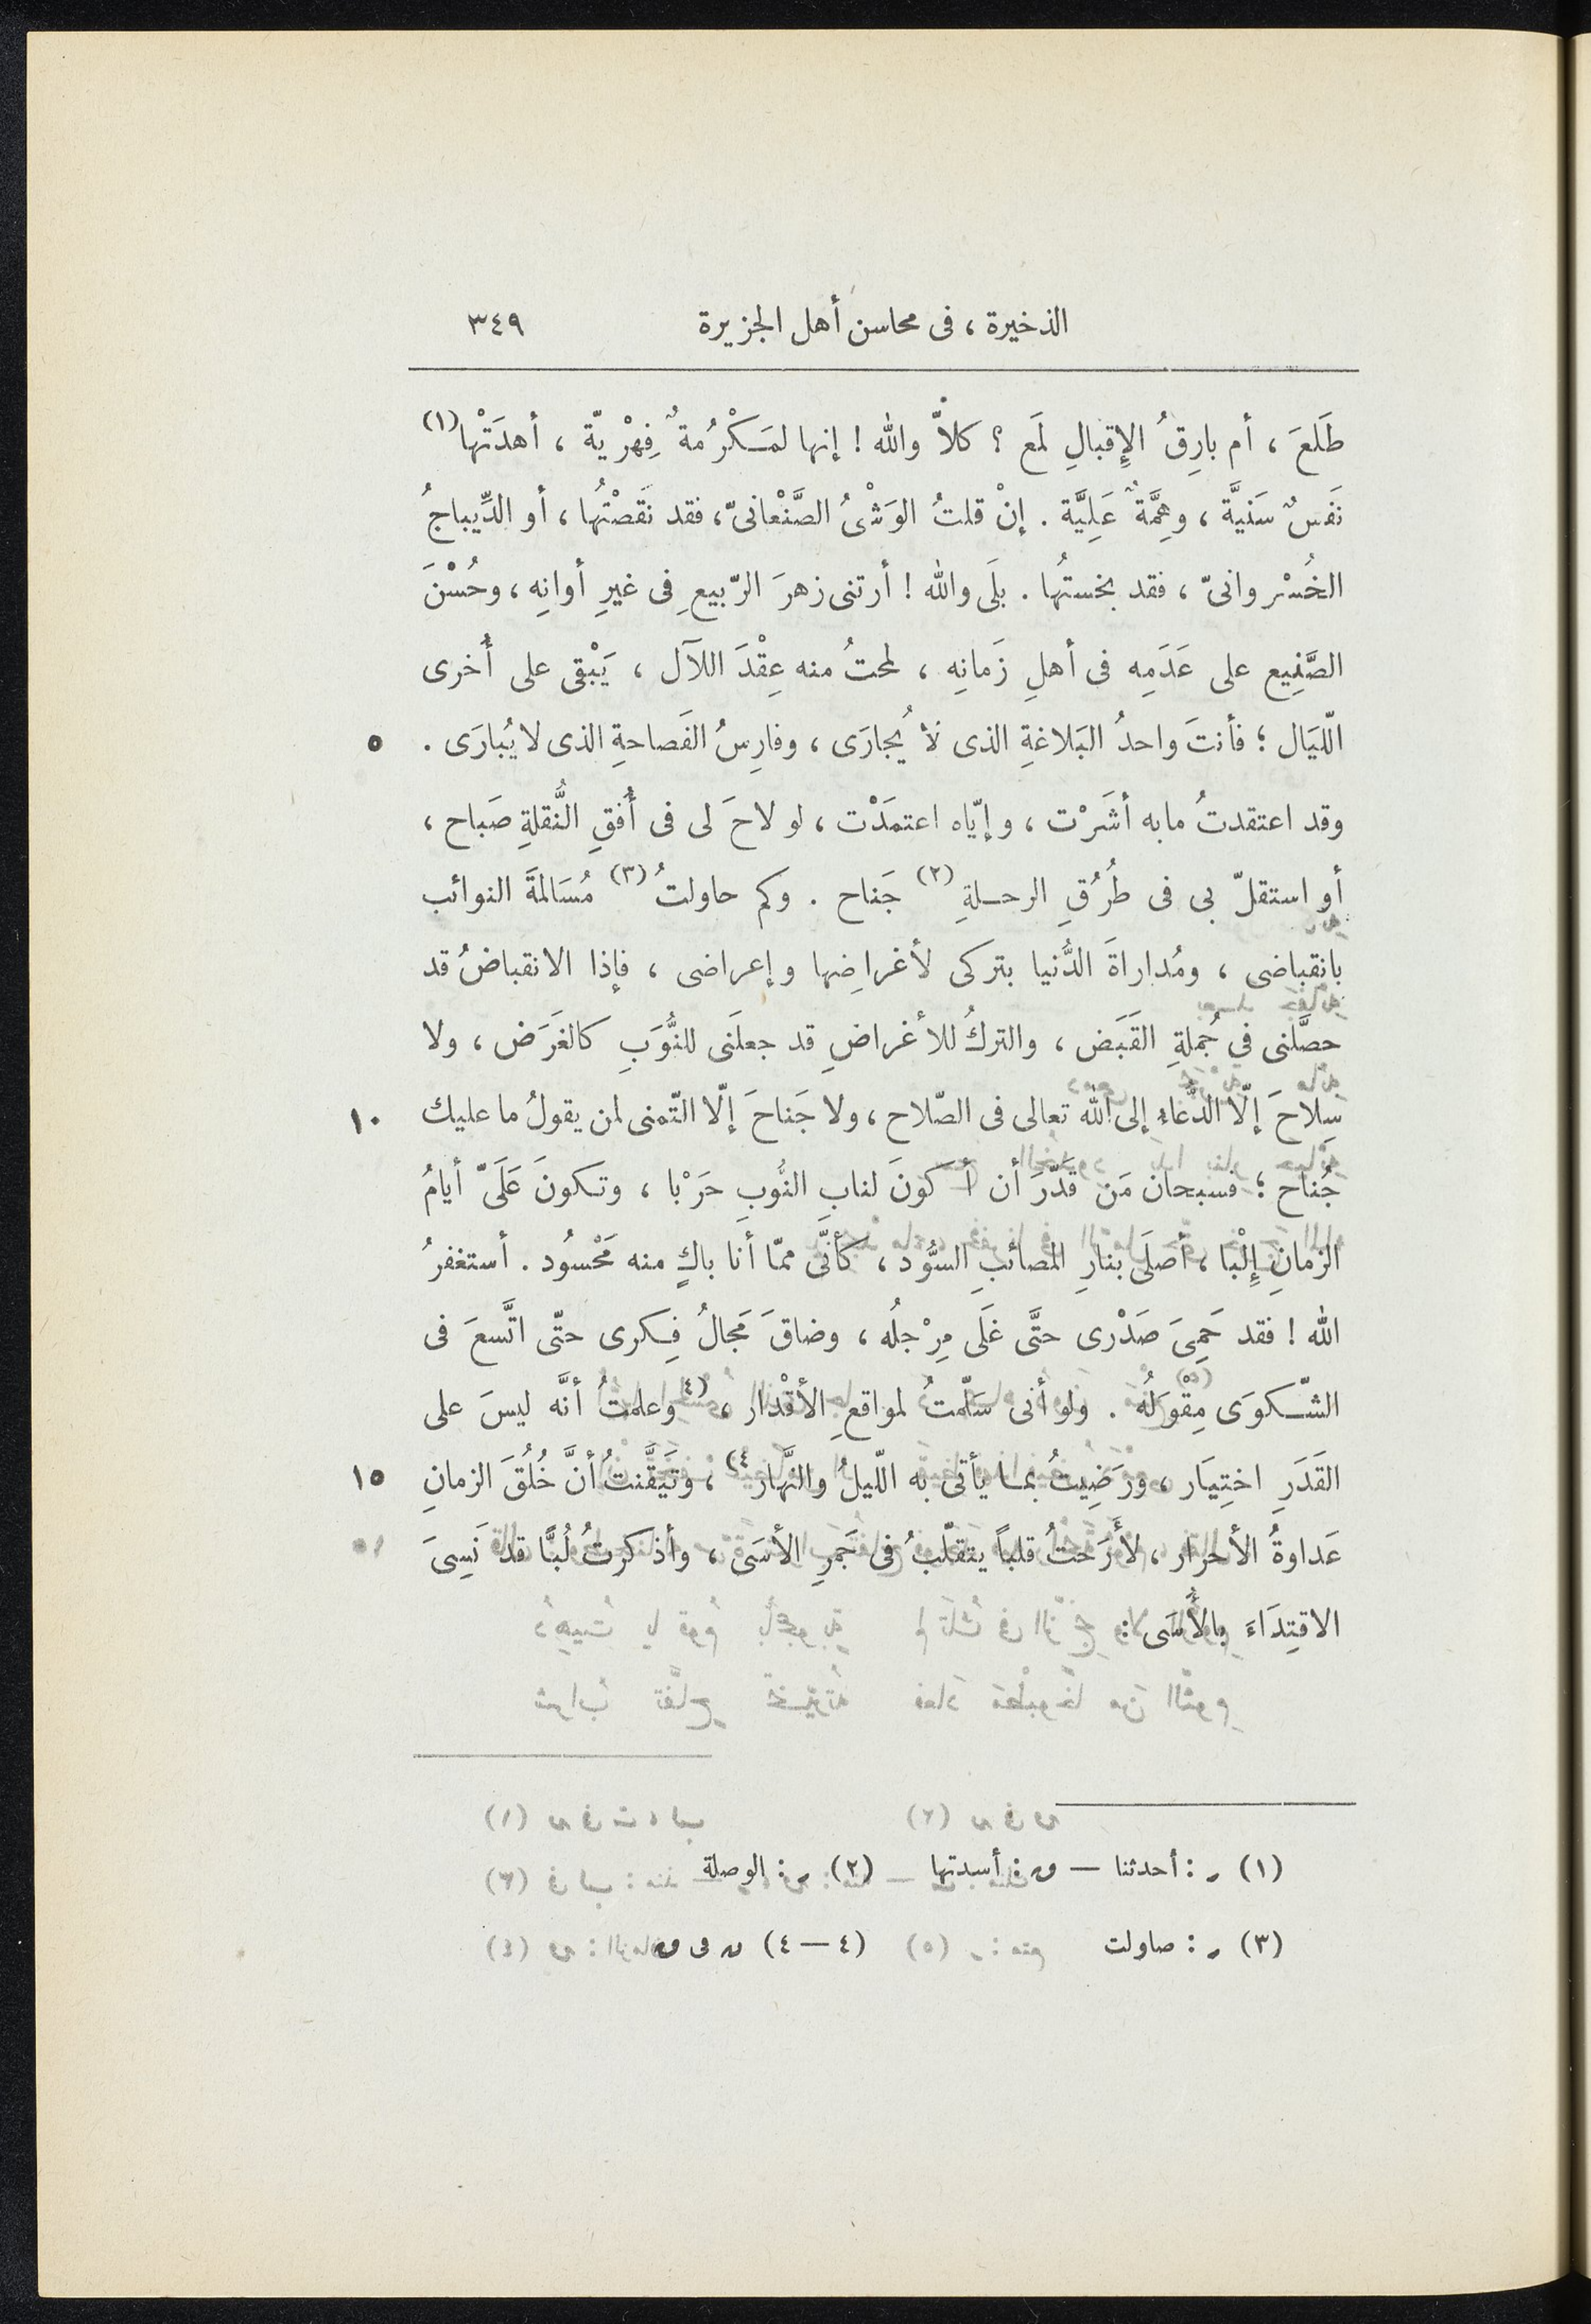 الذخيرة ، فى محاسن أهل الجزيرة ٣٤٩
طَلَعَ ، أم بارِقُ الإِقبالِ لمَع ؟ كلاّ والله ! إنها لمَكْرُمةٌ فِهْريّة ، أهدَتْها (١)
نَفَسٌ سَنيَّة ، وهِمَّةٌ عَلِيَّة . إنْ قلتُ الوَشْىُ الصَّنْعانىّ، فقد نَقَصْتُها ، أو الدِّيباجُ
الخُسْروانىّ ، فقد بخستُها . بلَى والله ! أرتنى زهرَ الرّبيعِ فى غيرِ أوانِه ، وحُسْنَ
الصَّنِيع على عَدَمِه فى أهلِ زَمانِه ، لمحتُ منه عِقْدَ اللآل ، يَبْقى على أُخرى
اللّيَال ؛ فأنتَ واحدُ البَلاغةِ الذى لا يُجارَى ، وفارِسُ الفَصاحةِ الذى لا يُبارَى . ٥
وقد اعتقدتُ مابه أشَرْت ، وإيّاه اعتمَدْت ، لو لاحَ لى فى أُفقِ النُّقلةِ صَباح ،
أو استقلّ بى فى طُرُقِ الرحلةِ (٢) جَناح . وكم حاولتُ (٣) مُسَالمَةَ النوائب
بانقباضى ، ومُداراةَ الدُّنيا بتركى لأغراضِها وإعراضى ، فإذا الانقباضُ قد
حصَّلنى فى جُملةِ القَبَض ، والتركُ للأغراضِ قد جعلَنى للنُّوَبِ كالغَرَض ، ولا
سِلاحَ إلّا الدُّعاءِ إلى الله تعالى فى الصّلاح ، ولا جَناحَ إلّا التّمنى لمن يقولُ ما عليك ١٠
جُناح ؛ فسبحان مَن قدّرَ أن أكونَ لنابِ النُّوبِ حَرْبا ، وتكونَ عَلَىّ أيامُ
الزمانِ إِلْبا ، أصلَى بنارِ المصائبِ السُّود ، كأنَّى ممّا أنا باكٍ منه مَحْسُود . أستغفرُ
الله ! فقد حَمِىَ صَدْرى حتَّى غَلَى مِرْجلُه ، وضاقَ مَجالُ فِكرى حتّى اتَّسعَ فى
الشّكوَى مِقْوَلُه . ولو أنى سَلّمتُ لمواقعِ الأقْدار ، (٤ وعلمتُ أنَّه ليسَ على
القَدَرِ اختِيَار ، ورَضِيتُ بما يأتى به اللّيلُ والنَّهار ٤) ، وتَيَقَّنتُ أنَّ خُلُقَ الزمانِ ١٥
عَداوةُ الأحرار ، لأَرَحتُ قلباً يتقلّبُ فى جَمرِ الأسَى ، وأذكرتُ لُبًّا قد نَسِىَ
الاقتِدَاءَ بالأَسَى :
(١) ر : أحدثنا — ق : أسدتها (٢) ر : الوصلة
(٣) ر : صاولت (٤ — ٤) ن فى ق